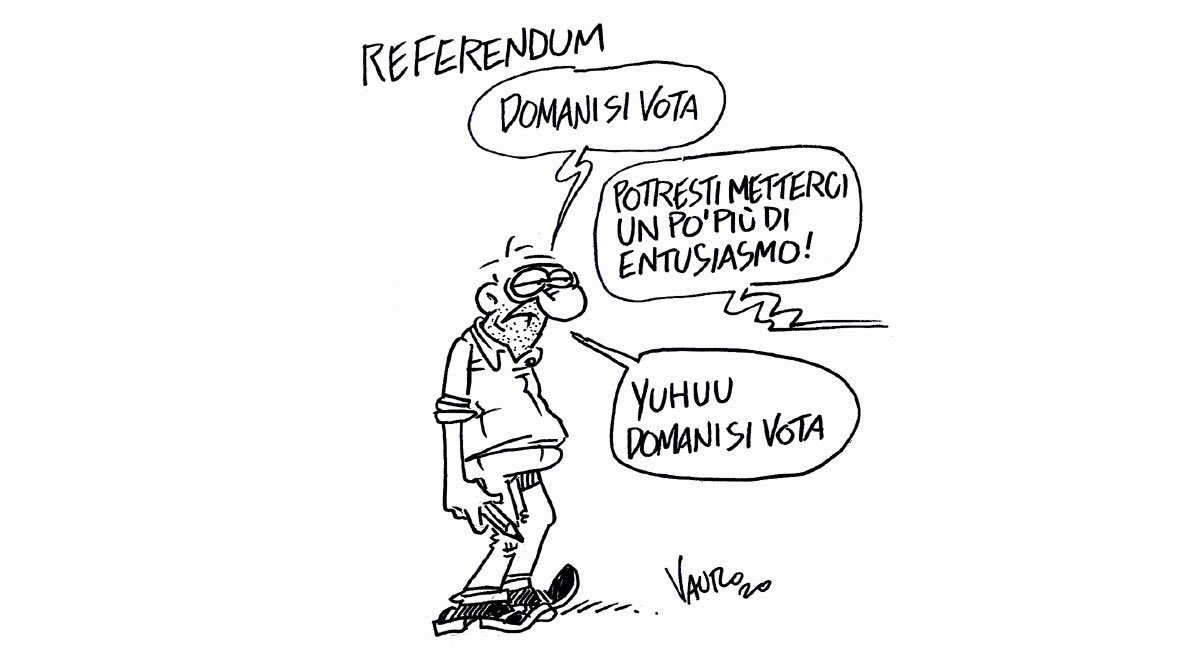 REFERENDUM
DOMANI SI VOTA
POTRESTI METTERCI
UN PO' PIÙ DI
ENTUSIASMO!
YUHUU
DOMANI SI VOTA
VAURO 20